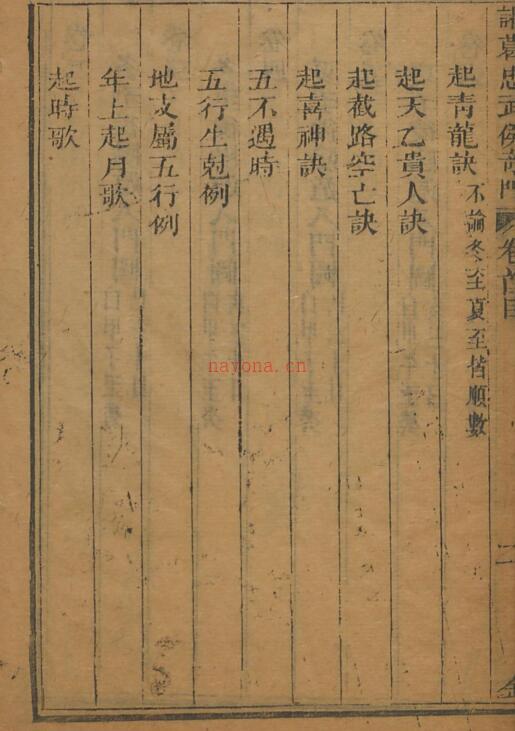 諸葛忠武侯奇門卷首目
二
起青龍訣不論冬至夏至皆順數
起天乙貴人訣
起截路空亡訣
起喜神訣
五不遇時
五行生剋例
地支屬五行例
年上起月歌
起時歌
nayona.cn